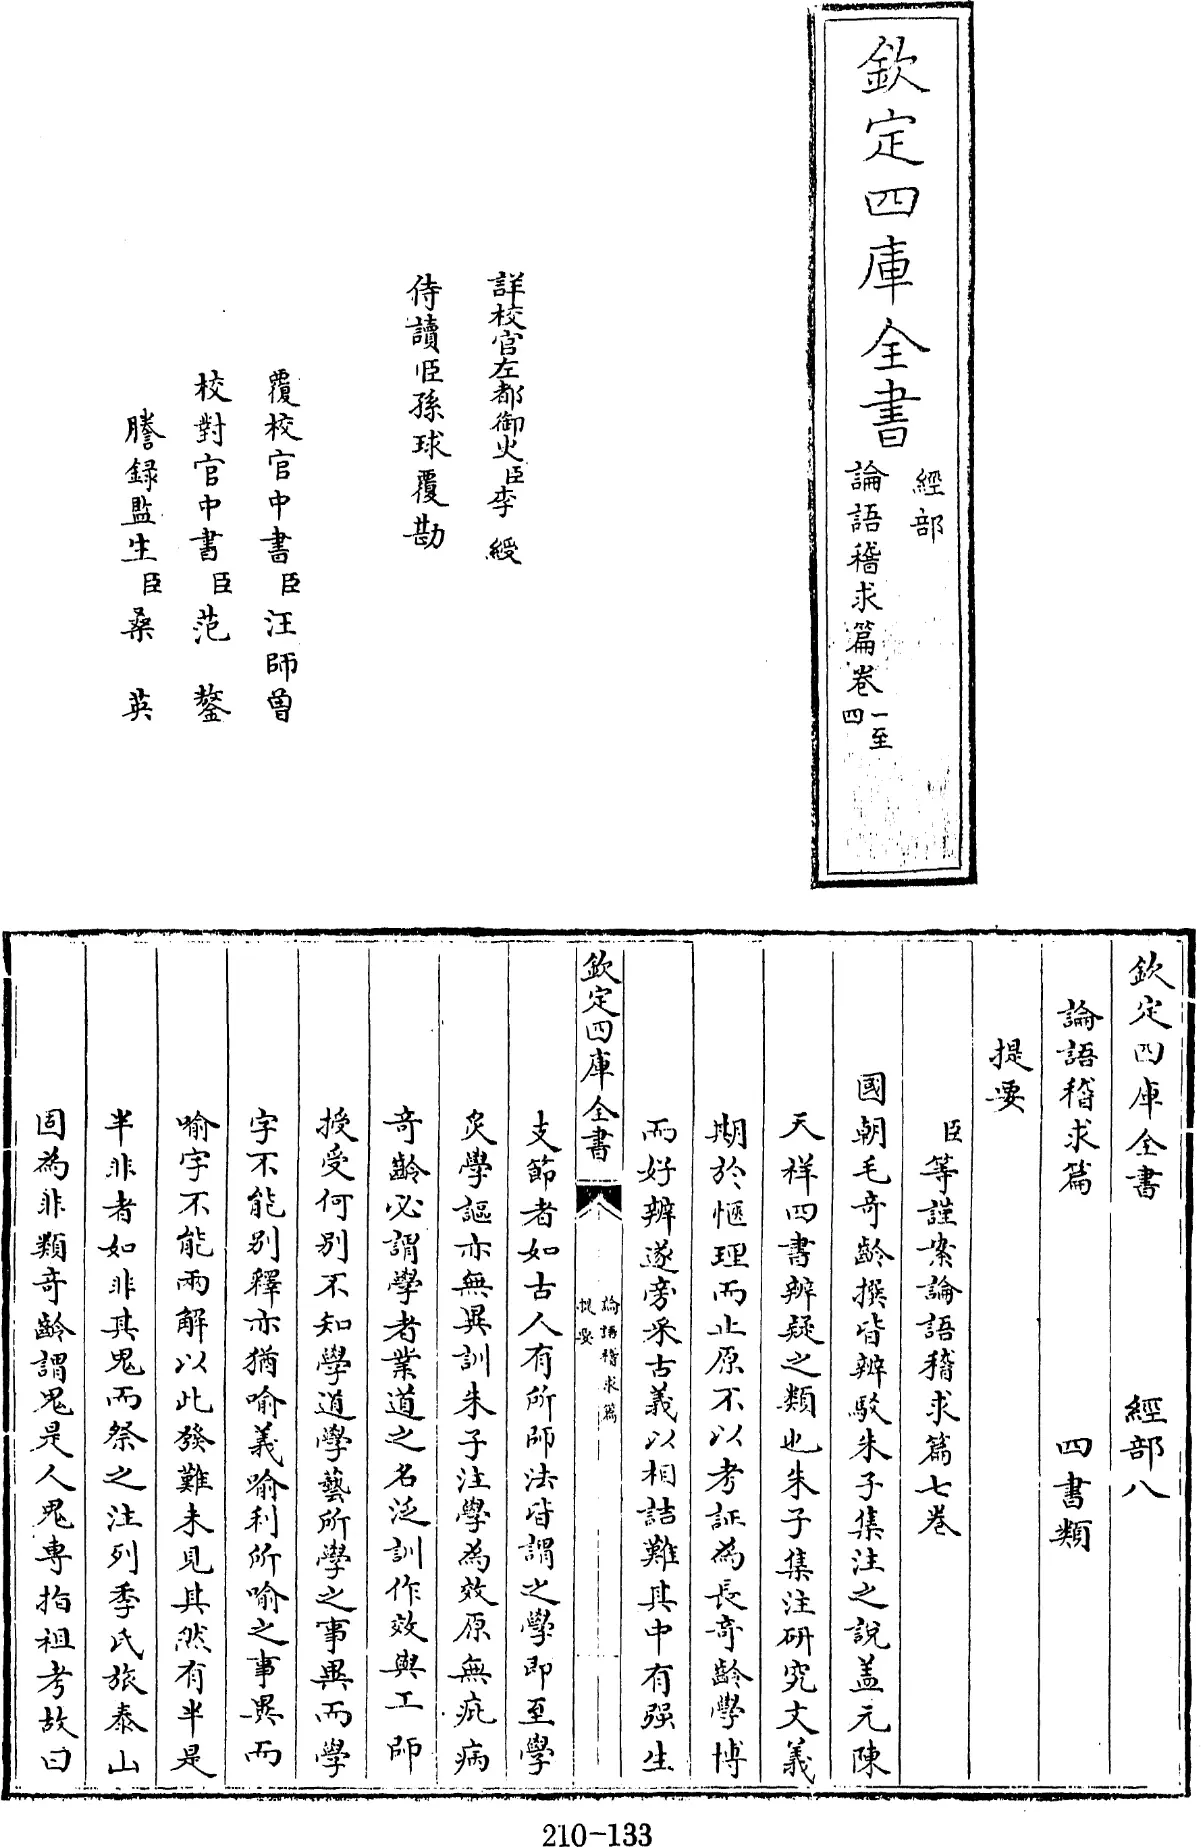 欽定四庫全書
經部
論語稽求篇卷一至四
詳校官左都御史臣李綬
侍讀臣孫球覆勘
覆校官中書臣汪師曾
校對官中書臣范鏊
謄録監生臣桑英
欽定四庫全書 經部八
論語稽求篇 四書類
提要
臣等謹案論語稽求篇七卷
國朝毛奇齡撰皆辨駁朱子集注之說盖元陳
天祥四書辨疑之類也朱子集注研究文義
期於愜理而止原不以考証為長奇齡學博
而好辨遂旁采古義以相詰難其中有强生
欽定四庫全書
論語稽求篇
提要
支節者如古人有所師法皆謂之學即至學
炙學謳亦無異訓朱子注學為效原無疵病
奇齡必謂學者業道之名泛訓作效與工師
授受何別不知學道學藝所學之事異而學
字不能別釋亦猶喻義喻利所喻之事異而
喻字不能兩解以此發難未見其然有半是
半非者如非其鬼而祭之注列季氏旅泰山
固為非類奇齡謂鬼是人鬼專指祖考故曰
210-133